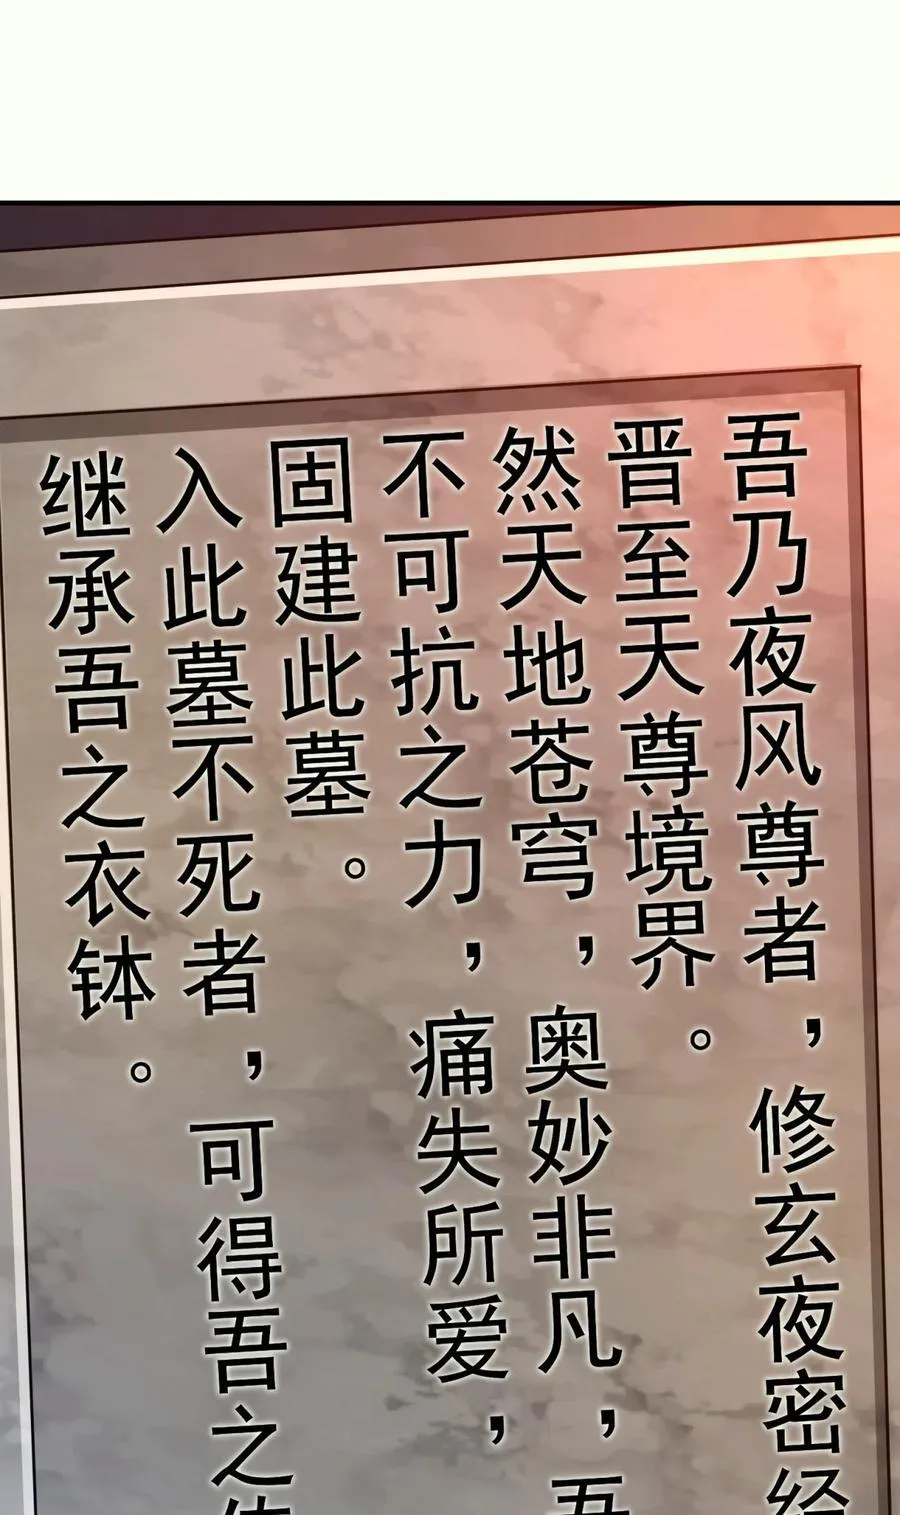 吾乃夜风尊者，修玄夜密经
晋至天尊境界。
然天地苍穹，奥妙非凡，吾
不可抗之力，痛失所爱，
固建此墓。
入此墓不死者，可得吾之传
继承吾之衣钵。